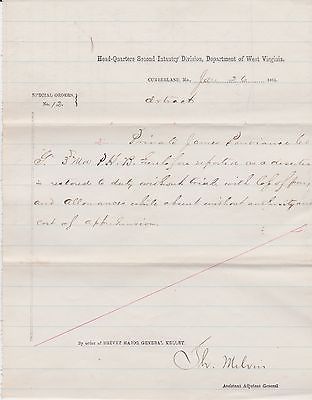 Head-Quarters Second Infantry Division, Department of West Virginia.
CUMBERLAND, Md., Jan 1865
SPECIAL ORDERS,
No. 12.
Extract
Private James Co
G 3" Md P.H.B. heretofore reported as a deserter
is restored to duty without trial with loss of pay
and allowances while absent without authority and
cost of apprehension.
By order of BREVET MAJOR GENERAL KELLEY.
Thr. Melvin
Assistant Adjutant General.